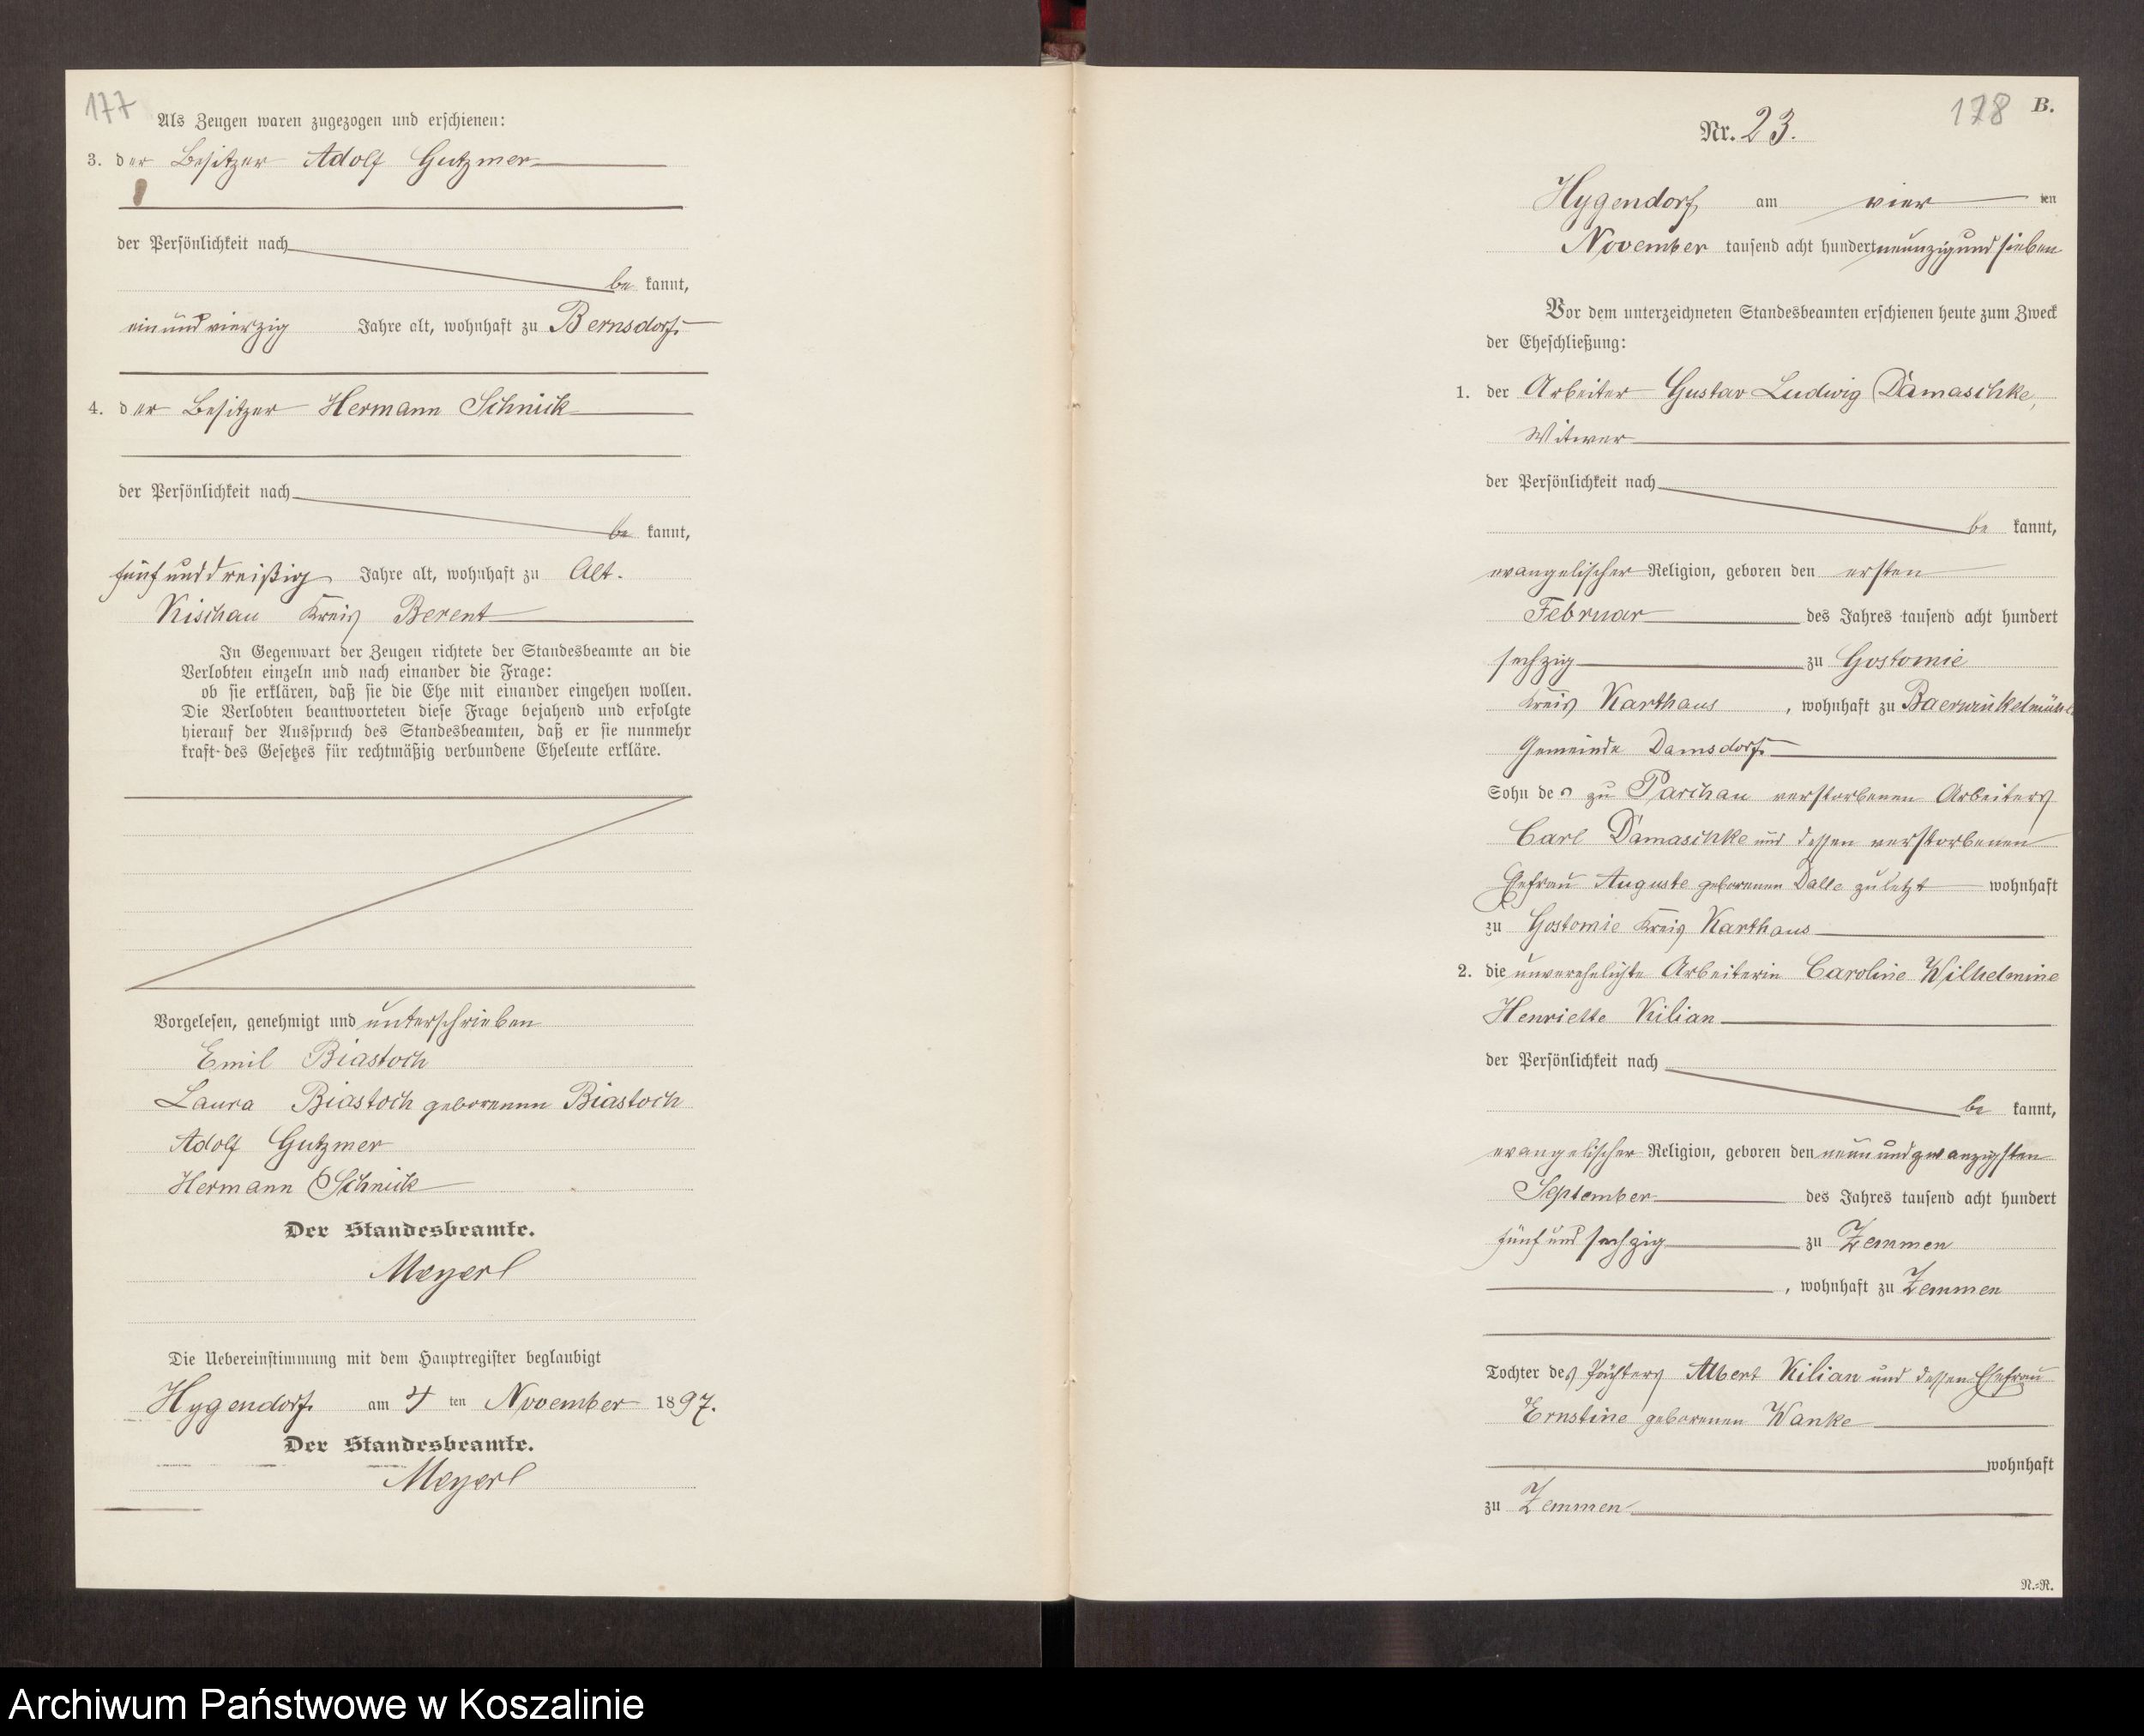 177
Als Zeugen waren zugezogen und erschienen:
3. der Besitzer Adolf Gutzmer
der Persönlichkeit nach
be kannt,
ein und vierzig Jahre alt, wohnhaft zu Bernsdorf.
4. der Besitzer Hermann Schnick
der Persönlichkeit nach
be kannt,
fünf und dreißig Jahre alt, wohnhaft zu Alt.
Kischau Kreis Berent
In Gegenwart der Zeugen richtete der Standesbeamte an die
Verlobten einzeln und nach einander die Frage:
ob sie erklären, daß sie die Ehe mit einander eingehen wollen.
Die Verlobten beantworteten diese Frage bejahend und erfolgte
hierauf der Ausspruch des Standesbeamten, daß er sie nunmehr
kraft des Gesetzes für rechtmäßig verbundene Eheleute erkläre.
Vorgelesen, genehmigt und unterschrieben
Emil Biastoch
Laura Biastoch geborenen Biastoch
Adolf Gutzmer
Hermann Schnick
Der Standesbeamte.
Meyerl
Die Uebereinstimmung mit dem Hauptregister beglaubigt
Hygendorf am 4 ten November 1897.
Der Standesbeamte.
Meyerl
178 B.
Nr. 23.
Hygendorf am vier ten
November tausend acht hundert neunzig und sieben
Vor dem unterzeichneten Standesbeamten erschienen heute zum Zweck
der Eheschließung:
1. der Arbeiter Gustav Ludwig Damaschke,
Witwer
der Persönlichkeit nach
be kannt,
evangelischer Religion, geboren den ersten
Februar des Jahres tausend acht hundert
sechzig zu Gostomie
Kreis Karthaus, wohnhaft zu Baerwinkelmühle
Gemeinde Damsdorf
Sohn des zu Parchau verstorbenen Arbeiters
Carl Damaschke und dessen verstorbenen
Ehefrau Auguste geborenen Dalle zuletzt wohnhaft
zu Gostomie Kreis Karthaus
2. die unverehelichte Arbeiterin Caroline Wilhelmine
Henriette Kilian
der Persönlichkeit nach
be kannt,
evangelischer Religion, geboren den neun und zwanzigsten
September des Jahres tausend acht hundert
fünf und sechzig zu Zemmen
, wohnhaft zu Zemmen
Tochter des Pächters Albert Kilian und dessen Ehefrau
Ernstine geborenen Wanke
wohnhaft
zu Zemmen
N.=R.
Archiwum Państwowe w Koszalinie